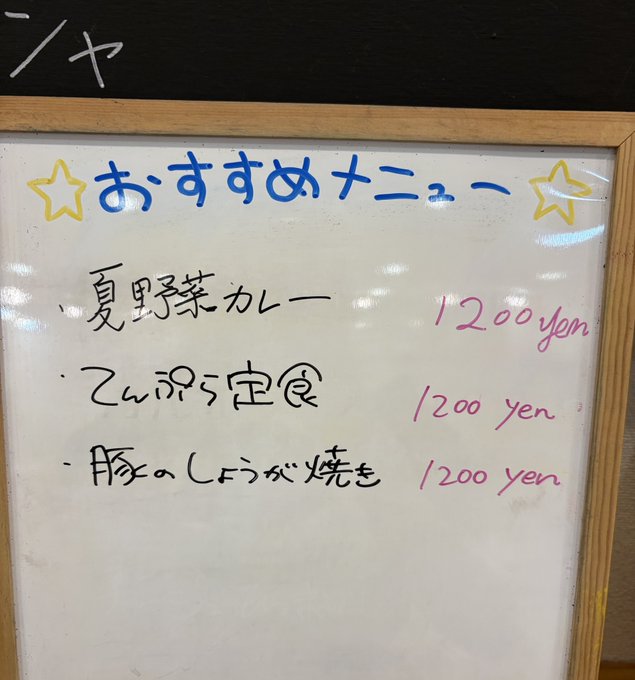 ンャ
☆おすすめメニュー☆
・夏野菜カレー 1200yen
・てんぷら定食 1200 yen
・豚のしょうが焼き 1200 yen